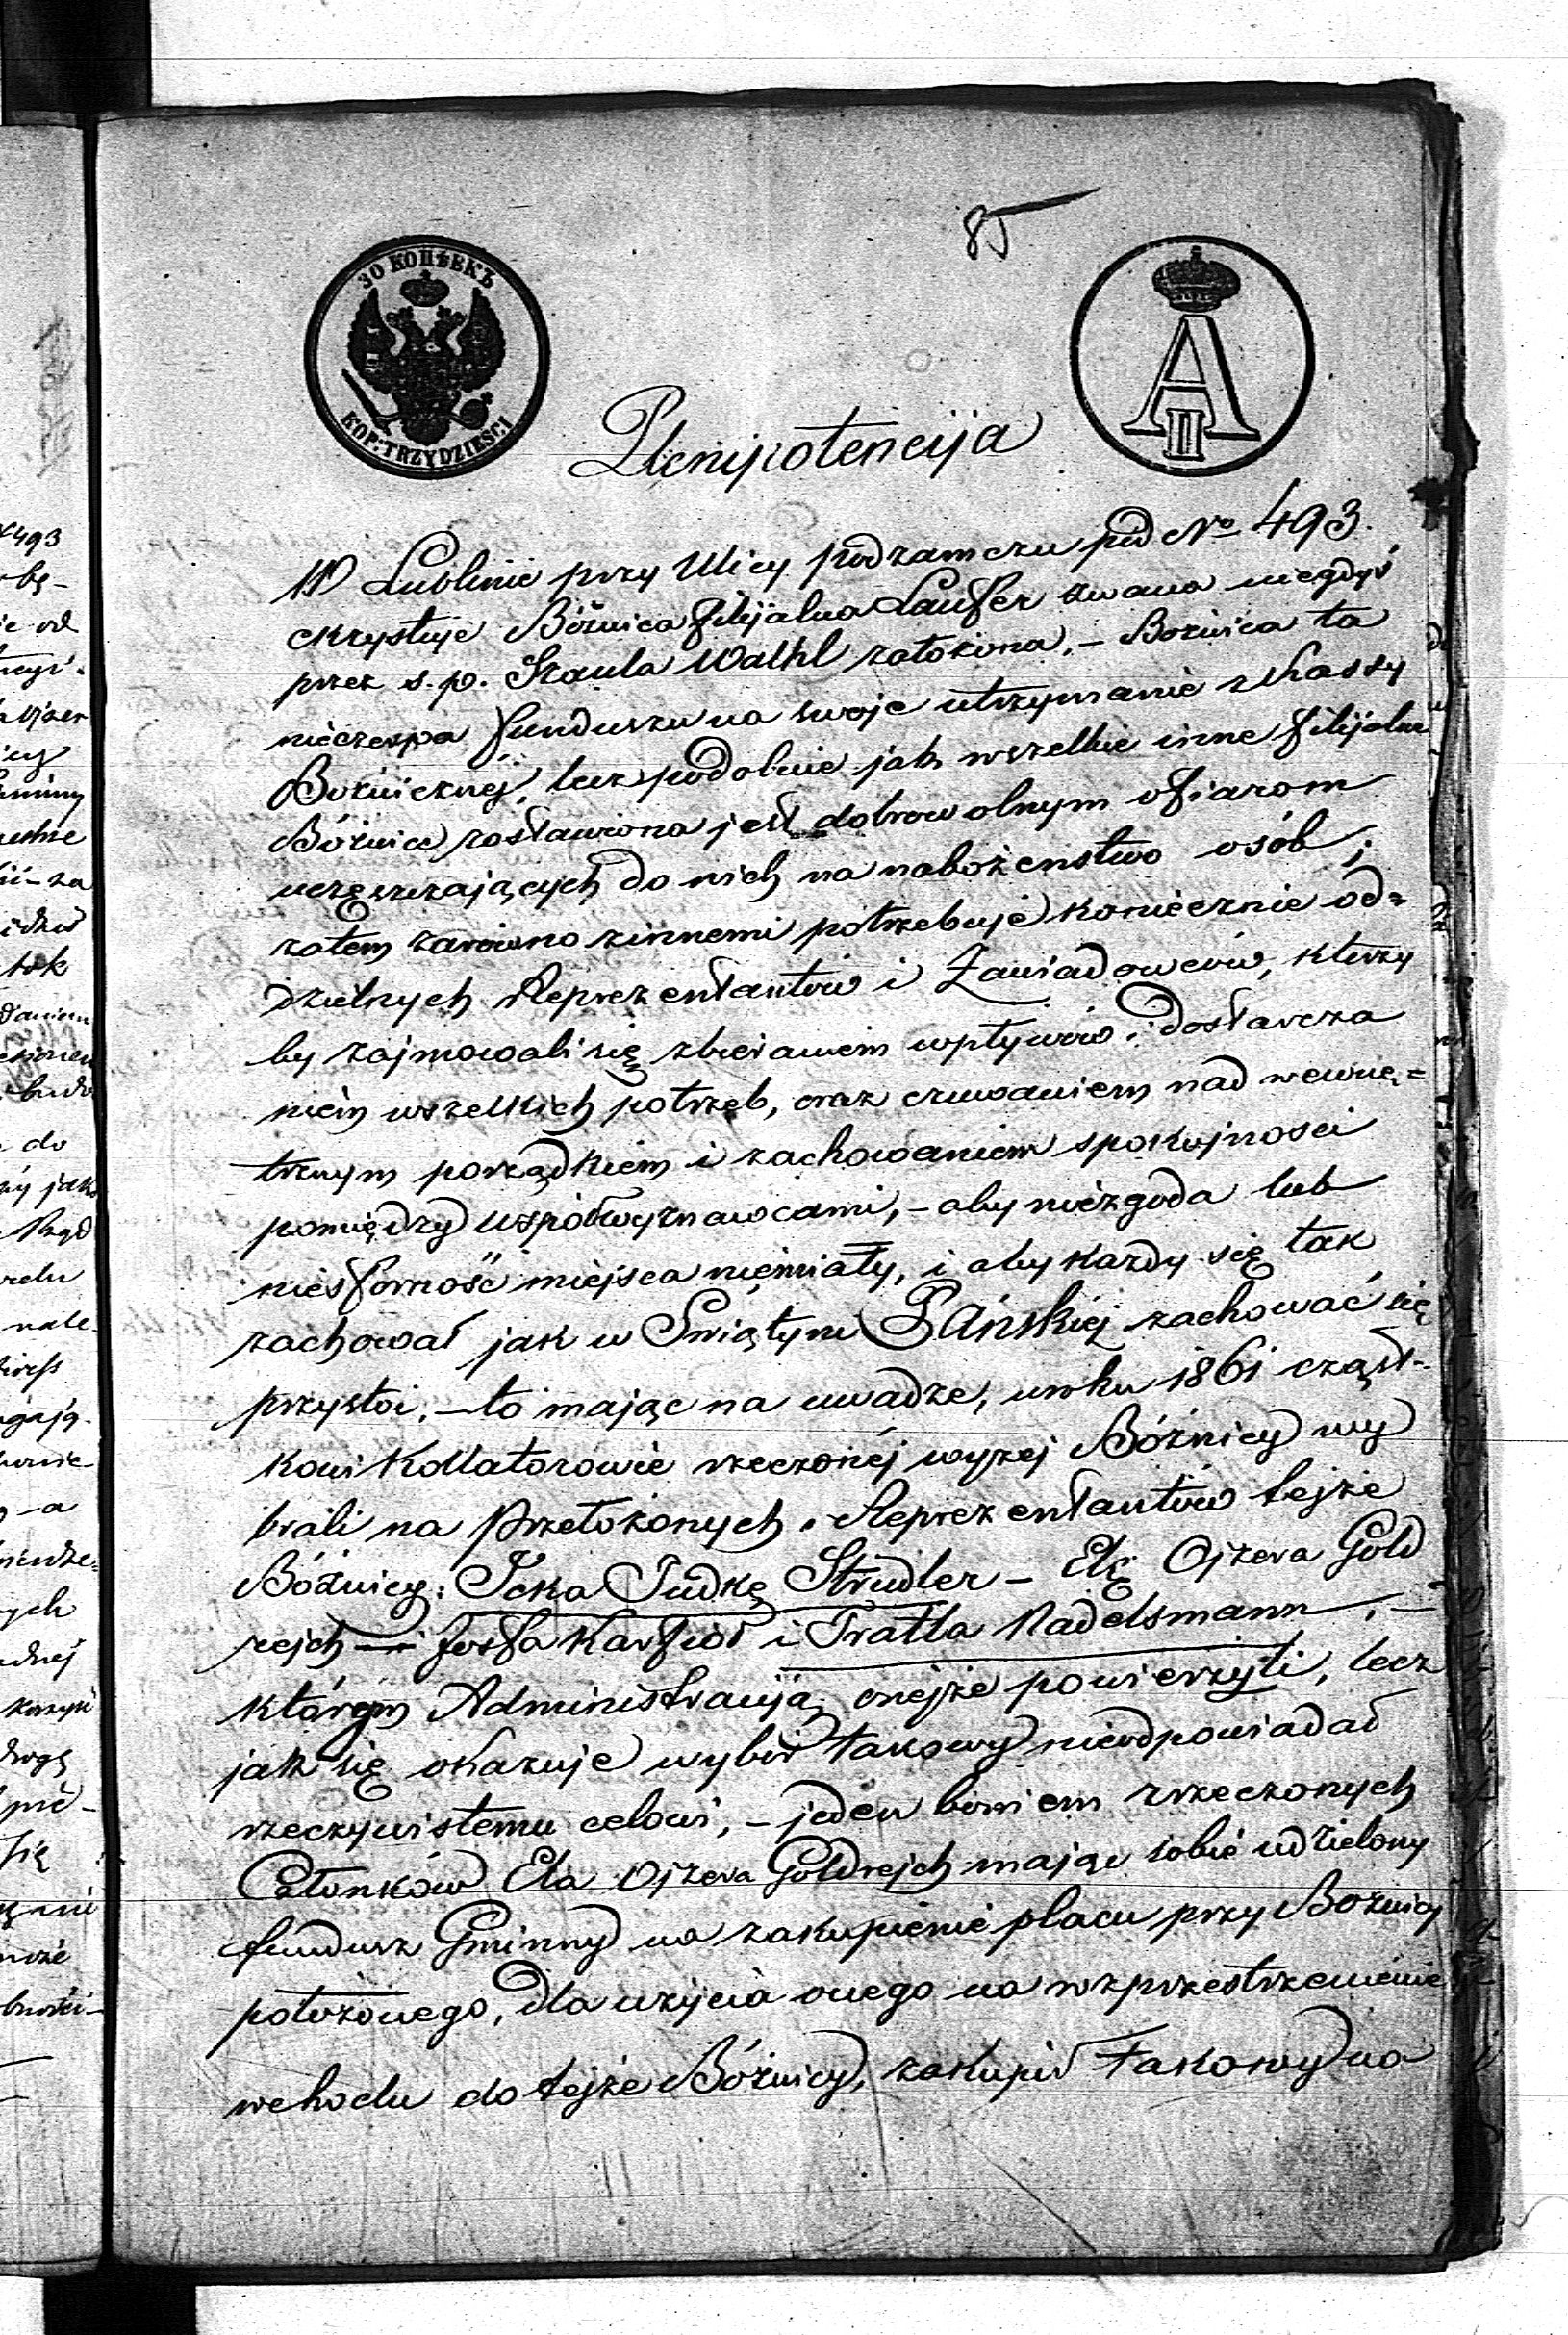 85
30 КОПѢЕКЪ
КОР: TRZYDZIEŚCI
A
II
Plenipotencyja
W Lublinie przy Ulicy Podzamczu pod No 493.
ekzystuje Bóżnica filijalna Laufer zwana niegdyś
przez s. p. Szaula Wallhl założona, – Boznica ta
nieczerpa funduszu na swoje utrzymanie z Kassy
Bóżnicznéj, lecz podobnie jak wszelkie inne filijalne
Bóżnice zostawiona jest dobrowolnym ofiarom
uczęszczających do nich na nabożenstwo osób;
zatem zarówno z innemi potrzebuje koniecznie od=
dzielnych Reprezentantów i Zawiadowców, którzy
by zajmowali się zbieraniem wpływów i dostarcza
niem wszelkich potrzeb, oraz czuwaniem nad wewnę=
trznym porządkiem i zachowaniem spokojnosci
pomiędzy współwyznawcami, – aby niezgoda lub
niesforność miejsca niemiały, i aby kazdy się tak
zachował jak w Swiątyni Pańskiej zachować się
przystoi, – to mając na uwadze, w roku 1861 cząst-
kowi Kollatorowie rzeczonéj wyzej Bóżnicy wy
brali na Przełożonych i Reprezentantów tejże
Bóżnicy: Icka Judkę Strudler – Elę Ojzera Gold
rejch – Josfa Karfioł i Fratla Nadelsmann, –
którym Administracyją onejże powierzyli, lecz
jak się okazuje wybór takowy nieodpowiadał
rzeczywistemu celowi, – jeden bowiem z rzeczonych
Członków Ela Ojzera Goldrejch mając sobie udzielony
fundusz Gminny na zakupienie placu przy Boznicy
położonego, dla użycia onego na rozprzestrzenienie
wchodu do tejże Bóżnicy, zakupił takowy na